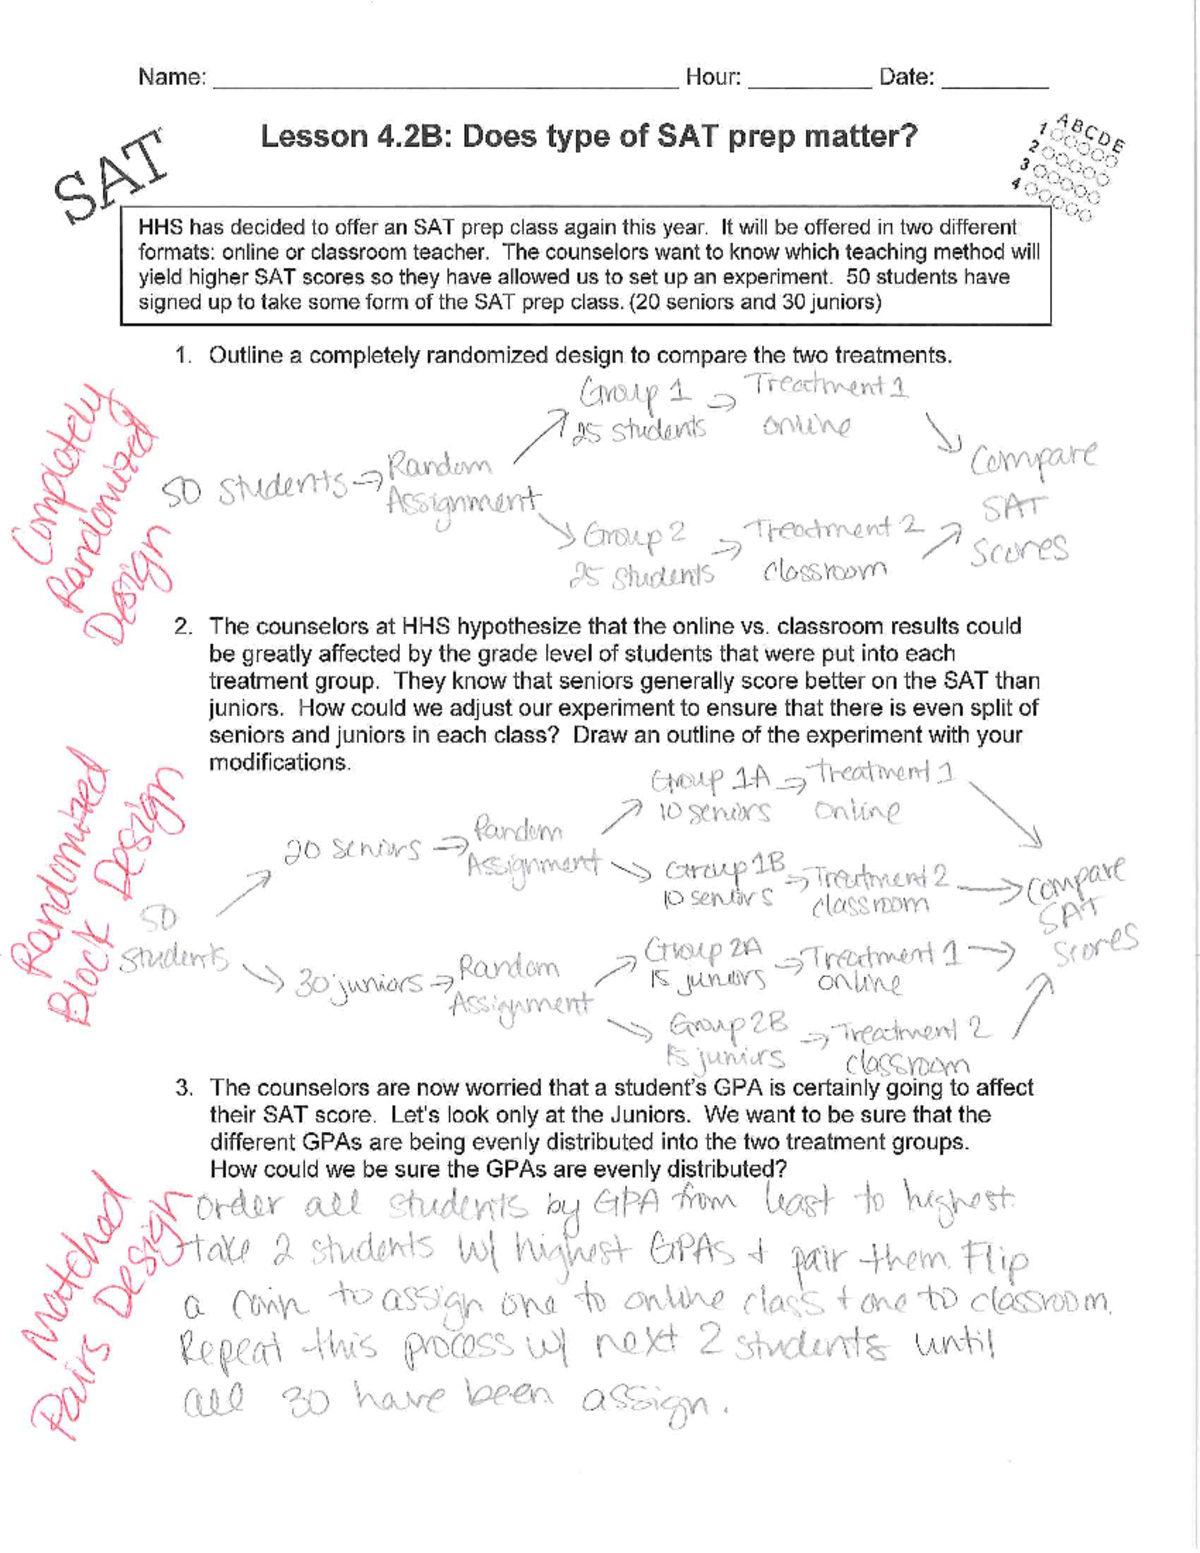 Name: ____________ Hour: ______ Date: ______
SAT
Lesson 4.2B: Does type of SAT prep matter?
A B C D E
1
2
3
4
HHS has decided to offer an SAT prep class again this year. It will be offered in two different
formats: online or classroom teacher. The counselors want to know which teaching method will
yield higher SAT scores so they have allowed us to set up an experiment. 50 students have
signed up to take some form of the SAT prep class. (20 seniors and 30 juniors)
1. Outline a completely randomized design to compare the two treatments.
Completely
Randomized
Design
50 students → Random
Assignment
Group 1 → Treatment 1
25 students online
Group 2 → Treatment 2
25 students classroom
Compare
SAT
Scores
2. The counselors at HHS hypothesize that the online vs. classroom results could
be greatly affected by the grade level of students that were put into each
treatment group. They know that seniors generally score better on the SAT than
juniors. How could we adjust our experiment to ensure that there is even split of
seniors and juniors in each class? Draw an outline of the experiment with your
modifications.
Randomized
Block Design
50
students
20 seniors → Random
Assignment
Group 1A → Treatment 1
10 seniors online
Group 1B → Treatment 2
10 seniors classroom
30 juniors → Random
Assignment
Group 2A → Treatment 1
15 juniors online
Group 2B → Treatment 2
15 juniors classroom
Compare
SAT
Scores
3. The counselors are now worried that a student's GPA is certainly going to affect
their SAT score. Let's look only at the Juniors. We want to be sure that the
different GPAs are being evenly distributed into the two treatment groups.
How could we be sure the GPAs are evenly distributed?
Matched
Pairs Design
Order all students by GPA from least to highest.
take 2 students w/ highest GPAs + pair them. Flip
a coin to assign one to online class + one to classroom.
Repeat this process w/ next 2 students until
all 30 have been assign.